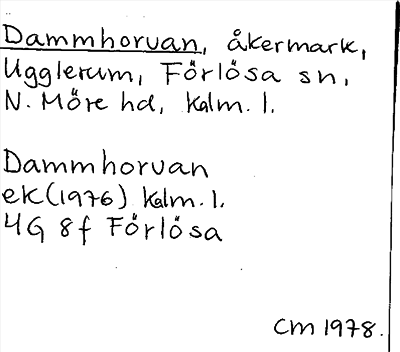 Dammhorvan, åkermark,
Ugglerum, Förlösa sn,
N. Möre hd, Kalm. l.
Dammhorvan
ek (1976) Kalm. l.
4G 8f Förlösa
CM 1978.